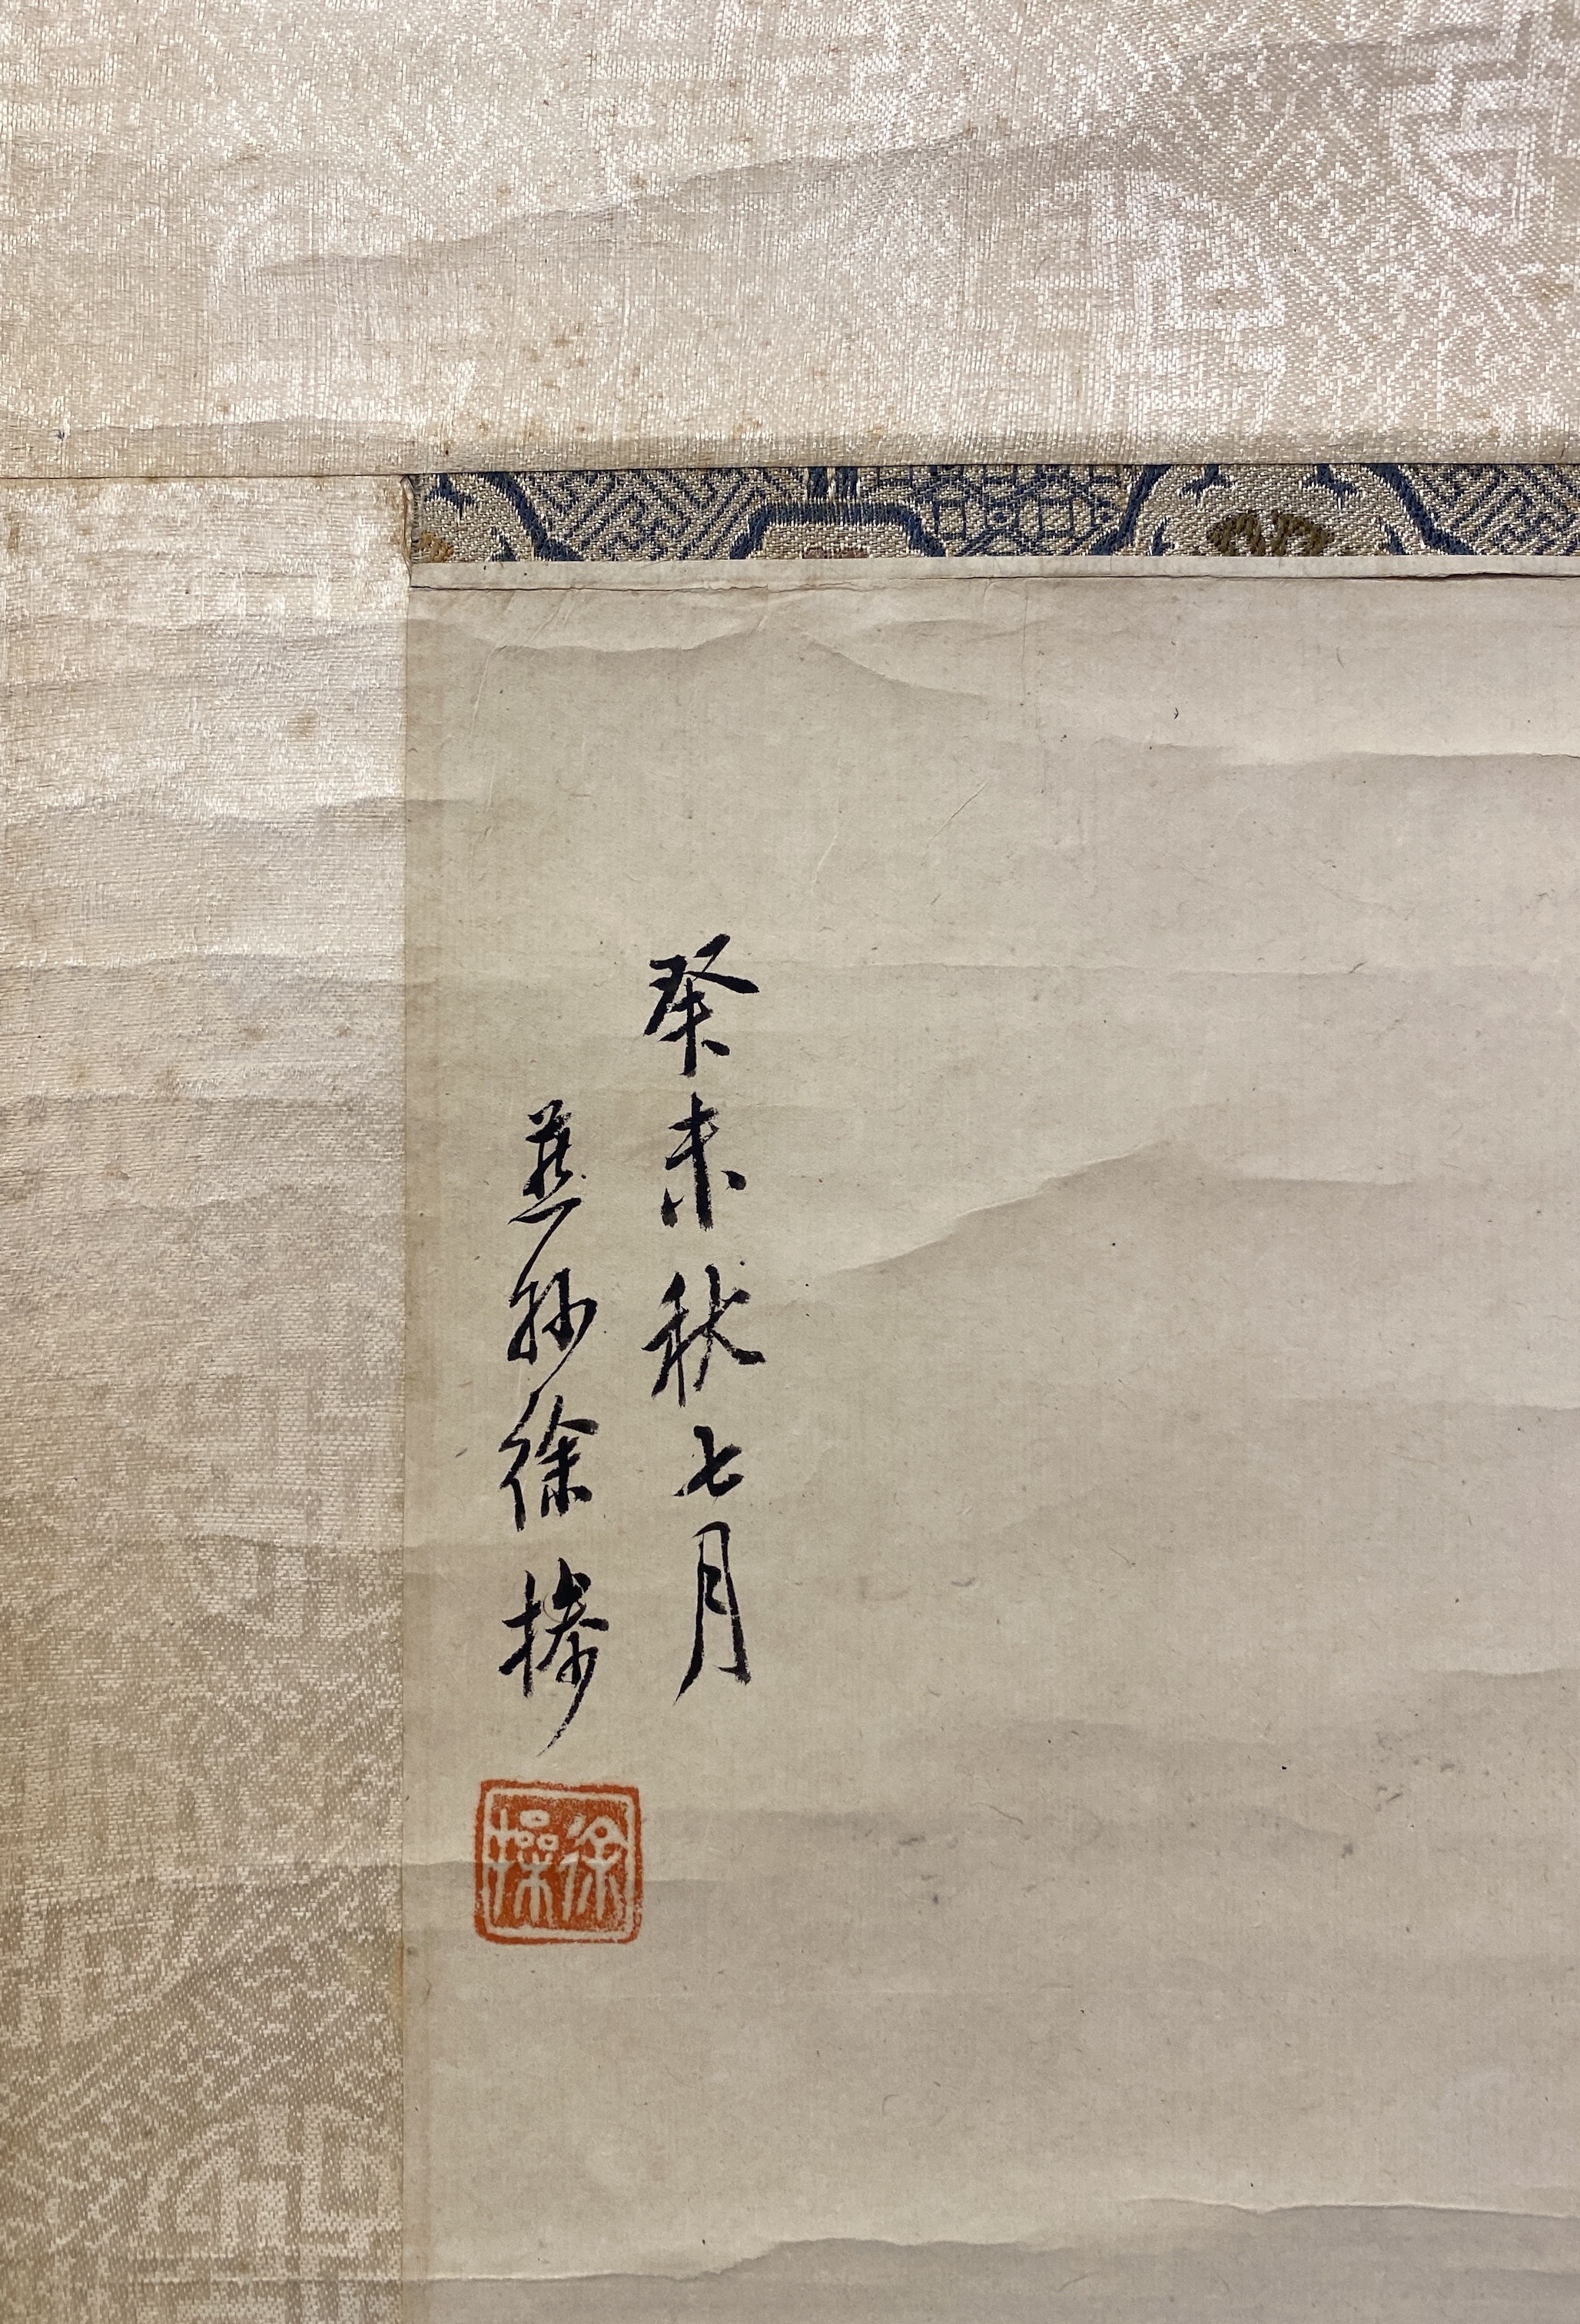 癸未秋七月
燕孙徐操
徐操